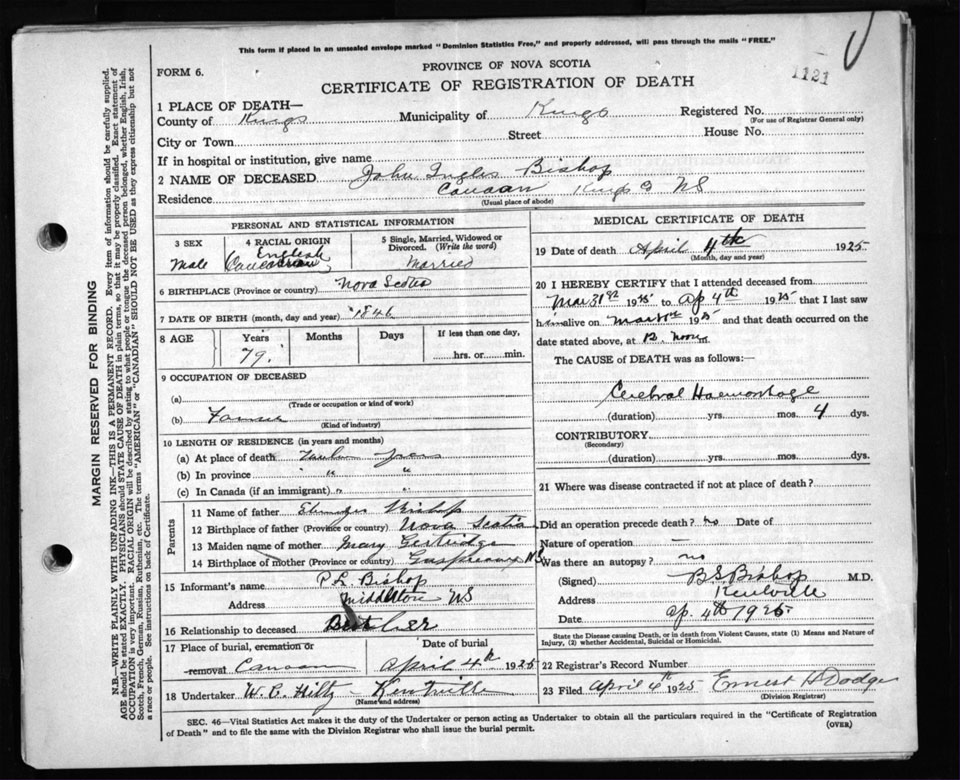 This form if placed in an unsealed envelope marked "Dominion Statistics Free," and properly addressed, will pass through the mails "FREE."
PROVINCE OF NOVA SCOTIA
1121
FORM 6.
CERTIFICATE OF REGISTRATION OF DEATH
1 PLACE OF DEATH—
County of Kings Municipality of Kings Registered No.
(For use of Registrar General only)
City or Town Street House No.
If in hospital or institution, give name
2 NAME OF DECEASED John Ingles Bishop
Residence Canaan Kings Co NS
(Usual place of abode)
PERSONAL AND STATISTICAL INFORMATION
3 SEX
Male
4 RACIAL ORIGIN
English
5 Single, Married, Widowed or Divorced. (Write the word)
Married
6 BIRTHPLACE (Province or country) Nova Scotia
7 DATE OF BIRTH (month, day and year) 1846
8 AGE Years Months Days If less than one day,
79 hrs. or min.
9 OCCUPATION OF DECEASED
(a)
(Trade or occupation or kind of work)
(b) Farmer
(Kind of industry)
10 LENGTH OF RESIDENCE (in years and months)
(a) At place of death years
(b) In province " "
(c) In Canada (if an immigrant) " "
Parents
11 Name of father Bishop
12 Birthplace of father (Province or country) Nova Scotia
13 Maiden name of mother Mary Gertridge
14 Birthplace of mother (Province or country) Gaspereaux NS
15 Informant's name P L Bishop
Address Middleton NS
16 Relationship to deceased
17 Place of burial, cremation or removal Canaan
Date of burial April 4th 1925
18 Undertaker W. C. Hiltz Kentville
(Name and address)
MEDICAL CERTIFICATE OF DEATH
19 Date of death April 4th 1925
(Month, day and year)
20 I HEREBY CERTIFY that I attended deceased from
Mar 31st 1925 to Ap 4th 1925 that I last saw
him alive on 1925 and that death occurred on the
date stated above, at 12 noon
The CAUSE of DEATH was as follows:—
Cerebral Haemorrhage
(duration) yrs. mos. 4 dys.
CONTRIBUTORY
(Secondary)
(duration) yrs. mos. dys.
21 Where was disease contracted if not at place of death?
Did an operation precede death? no Date of
Nature of operation —
Was there an autopsy? no
(Signed) B S Bishop M.D.
Address Kentville
Date Ap. 4th 1925
State the Disease causing Death, or in death from Violent Causes, state (1) Means and Nature of
Injury, (2) whether Accidental, Suicidal or Homicidal.
22 Registrar's Record Number
23 Filed April 6th 1925 Ernest H Dodge
(Division Registrar)
SEC. 46—Vital Statistics Act makes it the duty of the Undertaker or person acting as Undertaker to obtain all the particulars required in the "Certificate of Registration
of Death" and to file the same with the Division Registrar who shall issue the burial permit.
(OVER)
MARGIN RESERVED FOR BINDING
N.B.—WRITE PLAINLY WITH UNFADING INK—THIS IS A PERMANENT RECORD. Every item of information should be carefully supplied.
AGE should be stated EXACTLY. PHYSICIANS should STATE CAUSE OF DEATH in plain terms, so that it may be properly classified. Exact statement of
OCCUPATION is very important. RACIAL ORIGIN will be described by stating to what people or tongue the deceased person belonged, whether English, Irish,
Scotch, French, German, Russian, Ruthenian, etc. The terms "AMERICAN" or "CANADIAN" SHOULD NOT BE USED as they express citizenship but not
a race or people. See instructions on back of Certificate.